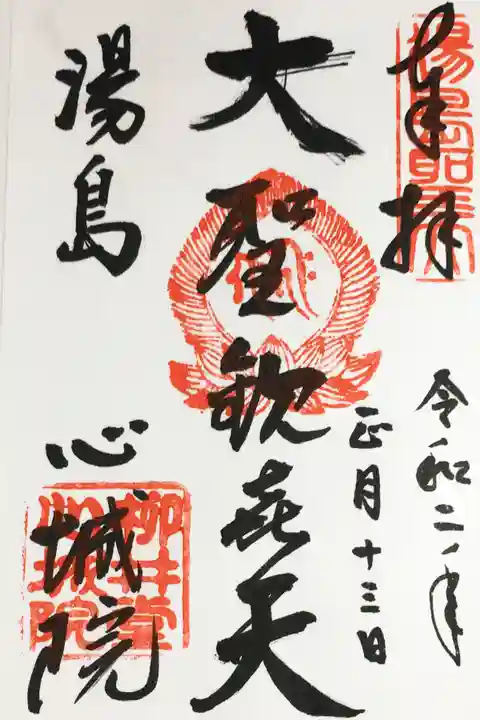 奉拝
令和二年
正月十三日
大聖歓喜天
湯島
心城院
湯島聖天
柳井堂
心城院